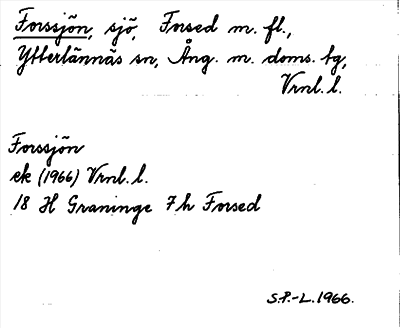 Forssjön, sjö, Forsed m. fl.,
Ytterlännäs sn, Ång. m. doms. tg,
Vrnl. l.
Forssjön
ek (1966) Vrnl. l.
18 H Graninge 7h Forsed
S.P.-L. 1966.